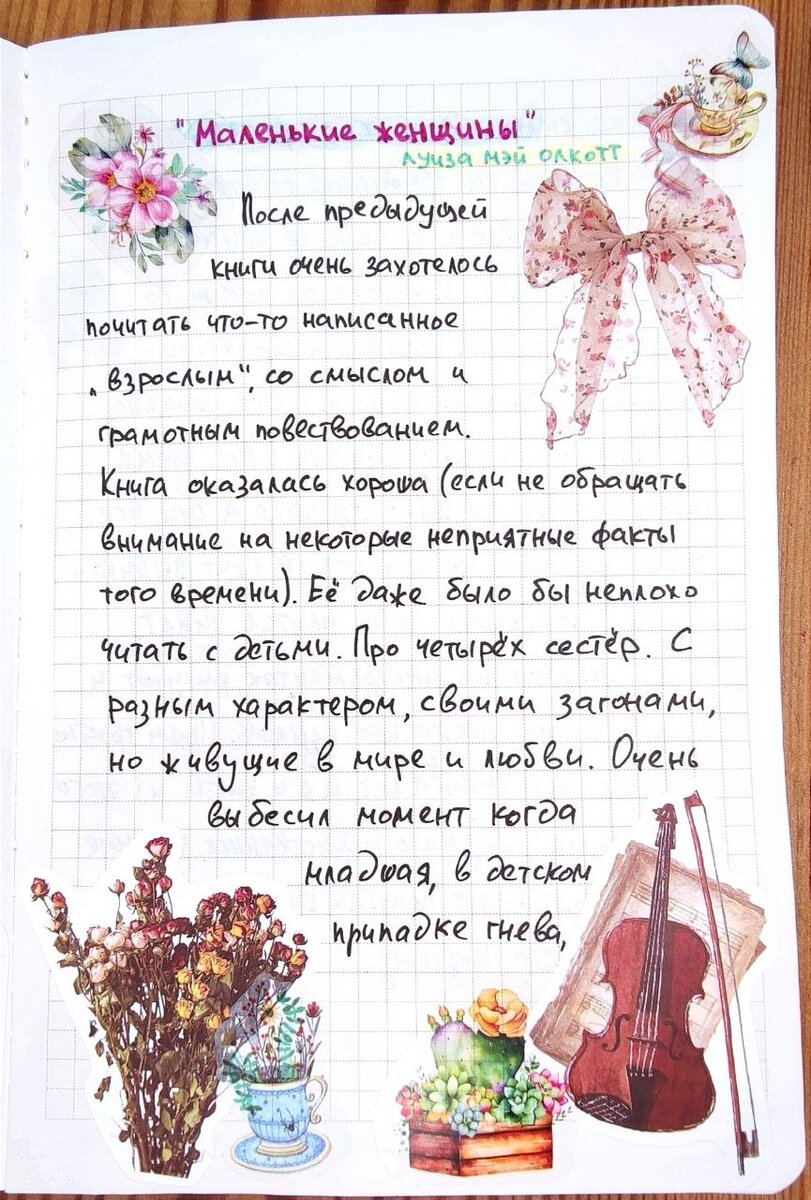 "Маленькие женщины"
Луиза Мэй Олкотт
После предыдущей
книги очень захотелось
почитать что-то написанное
„взрослым", со смыслом и
грамотным повествованием.
Книга оказалась хороша (если не обращать
внимание на некоторые неприятные факты
того времени). Её даже было бы неплохо
читать с детьми. Про четырёх сестёр. С
разным характером, своими загонами,
но живущие в мире и любви. Очень
выбесил момент когда
младшая, в детском
припадке гнева,